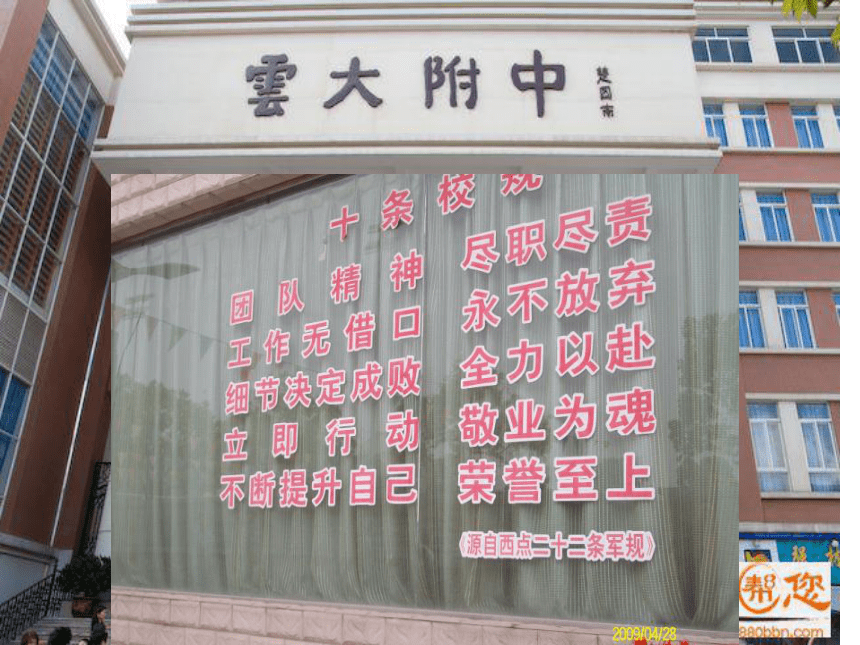 雲大附中
楚图南
十条校规
团队精神 尽职尽责
工作无借口 永不放弃
细节决定成败 全力以赴
立即行动 敬业为魂
不断提升自己 荣誉至上
《源自西点二十二条军规》
2009/04/28
帮您
880bbn.com